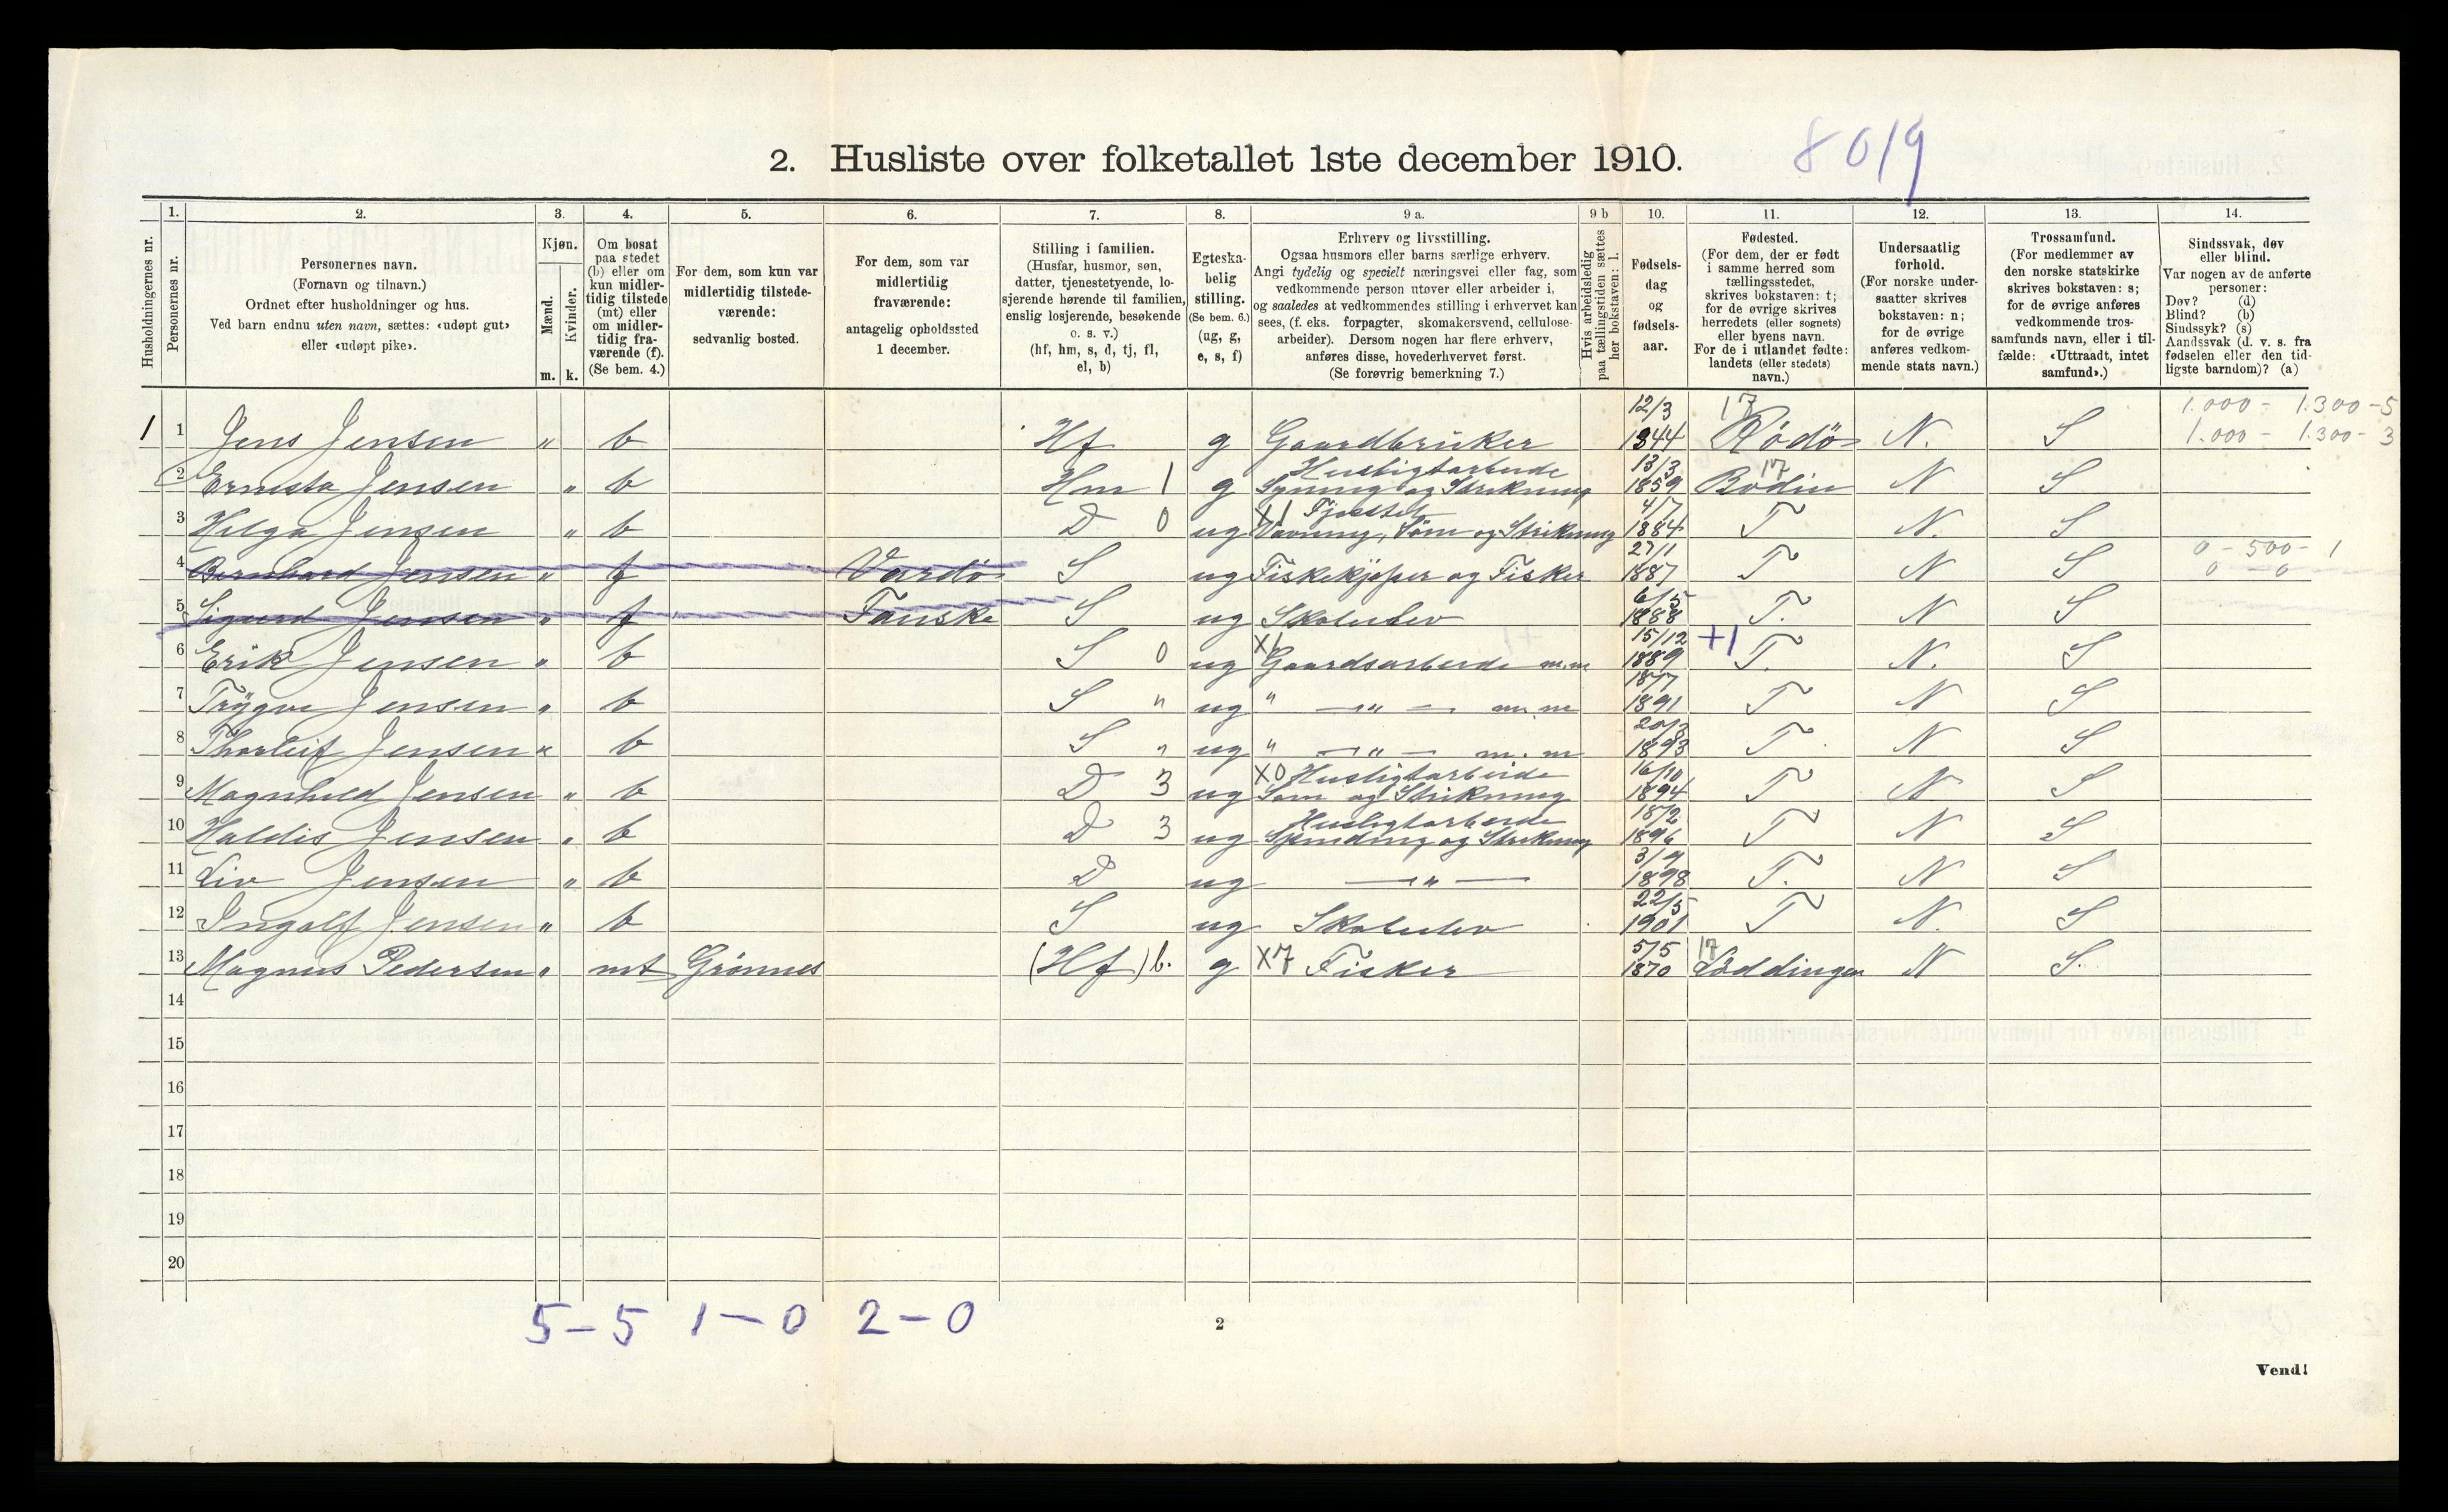 2. Husliste over folketallet 1ste december 1910.
8019
Husholdningernes nr.
1. Personernes nr.
2. Personernes navn.
(Fornavn og tilnavn.)
Ordnet efter husholdninger og hus.
Ved barn endnu uten navn, sættes: «udøpt gut»
eller «udøpt pike».
3. Kjøn.
Mænd. m.
Kvinder. k.
4. Om bosat
paa stedet
(b) eller om
kun midler-
tidig tilstede
(mt) eller
om midler-
tidig fra-
værende (f).
(Se bem. 4.)
5. For dem, som kun var
midlertidig tilstede-
værende:
sedvanlig bosted.
6. For dem, som var
midlertidig
fraværende:
antagelig opholdssted
1 december.
7. Stilling i familien.
(Husfar, husmor, søn,
datter, tjenestetyende, lo-
sjerende hørende til familien,
enslig losjerende, besøkende
o. s. v.)
(hf, hm, s, d, tj, fl,
el, b)
8. Egteska-
belig
stilling.
(Se bem. 6.)
(ug, g,
e, s, f)
9 a. Erhverv og livsstilling.
Ogsaa husmors eller barns særlige erhverv.
Angi tydelig og specielt næringsvei eller fag, som
vedkommende person utøver eller arbeider i,
og saaledes at vedkommendes stilling i erhvervet kan
sees, (f. eks. forpagter, skomakersvend, cellulose-
arbeider). Dersom nogen har flere erhverv,
anføres disse, hovederhvervet først.
(Se forøvrig bemerkning 7.)
9 b Hvis arbeidsledig
paa tællingstiden sættes
her bokstaven: l.
10. Fødsels-
dag
og
fødsels-
aar.
11. Fødested.
(For dem, der er født
i samme herred som
tællingsstedet,
skrives bokstaven: t;
for de øvrige skrives
herredets (eller sognets)
eller byens navn.
For de i utlandet fødte:
landets (eller stedets)
navn.)
12. Undersaatlig
forhold.
(For norske under-
saatter skrives
bokstaven: n;
for de øvrige
anføres vedkom-
mende stats navn.)
13. Trossamfund.
(For medlemmer av
den norske statskirke
skrives bokstaven: s;
for de øvrige anføres
vedkommende tros-
samfunds navn, eller i til-
fælde: «Uttraadt, intet
samfund».)
14. Sindssvak, døv
eller blind.
Var nogen av de anførte
personer:
Døv? (d)
Blind? (b)
Sindssyk? (s)
Aandssvak (d. v. s. fra
fødselen eller den tid-
ligste barndom)? (a)
1 1 Jens Jensen " b Hf g Gaardbruker 12/3 1844 17 Rödö N. S 1.000 - 1.300 - 5
1.000 - 1.300 - 3
2 Ernesta Jensen " b Hm 1 g Husligtarbeide Syning og Strikning 13/3 1859 17 Bodin N S
3 Helga Jensen " b D 0 ug X1 Fjøsstel Vævning, Söm og Strikning 4/7 1884 T N. S
4 Bernhard Jensen " f Vardö S ug Fiskekjøper og Fisker 27/1 1887 T N S 0 - 500 - 1
0 - 0
5 Sigurd Jensen " f Fauske S ug Skoleelev 6/5 1888 T. N S
6 Erik Jensen " b S 0 ug X1 Gaardsarbeide m.m 15/12 1889 +1 T. N. S
7 Trÿgve Jensen " b S " ug " — " — m.m 18/7 1891 T N S
8 Thorleif Jensen " b S " ug " — " — m.m 20/3 1893 T. N S
9 Magnhild Jensen " b D 3 ug X0 Husligtarbeide Söm og Strikning 16/10 1894 T N S
10 Haldis Jensen " b D 3 ug Husligtarbeide Spinding og Strikning 18/2 1896 T N S
11 Liv Jensen " b D ug — " — 3/9 1898 T. N S
12 Ingolf Jensen " b S ug Skoleelev 22/5 1901 T N. S
13 Magnus Pedersen " mt Grönnes (Hf) b. g X7 Fisker 5/5 1870 17 Löddingen N S.
14
15
16
17
18
19
20
5 - 5 1 - 0 2 - 0
2
Vend!